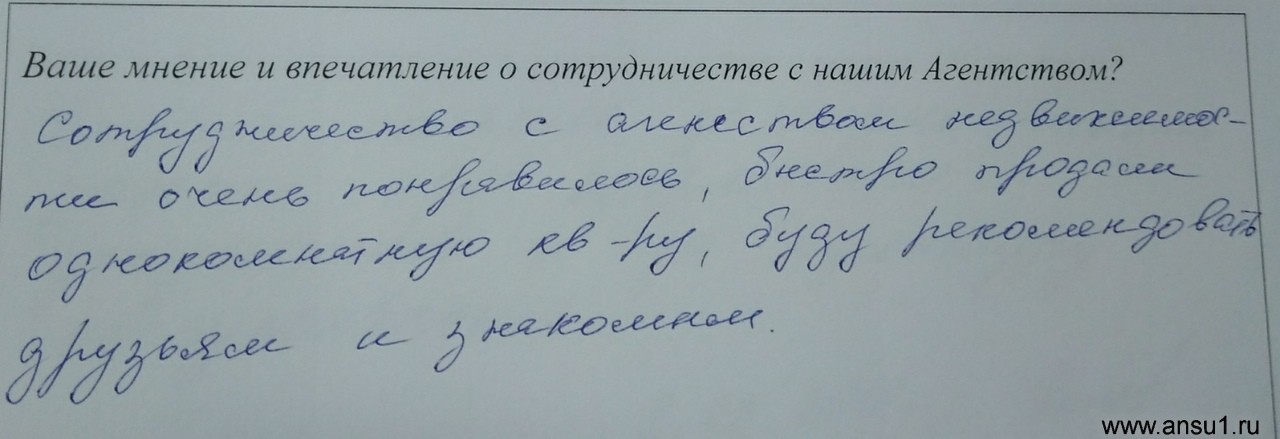 Ваше мнение и впечатление о сотрудничестве с нашим Агентством?
Сотрудничество с агенством недвижимос-
ти очень понравилось, быстро продали
однокомнатную кв-ру, буду рекомендовать
друзьям и знакомым.
www.ansu1.ru